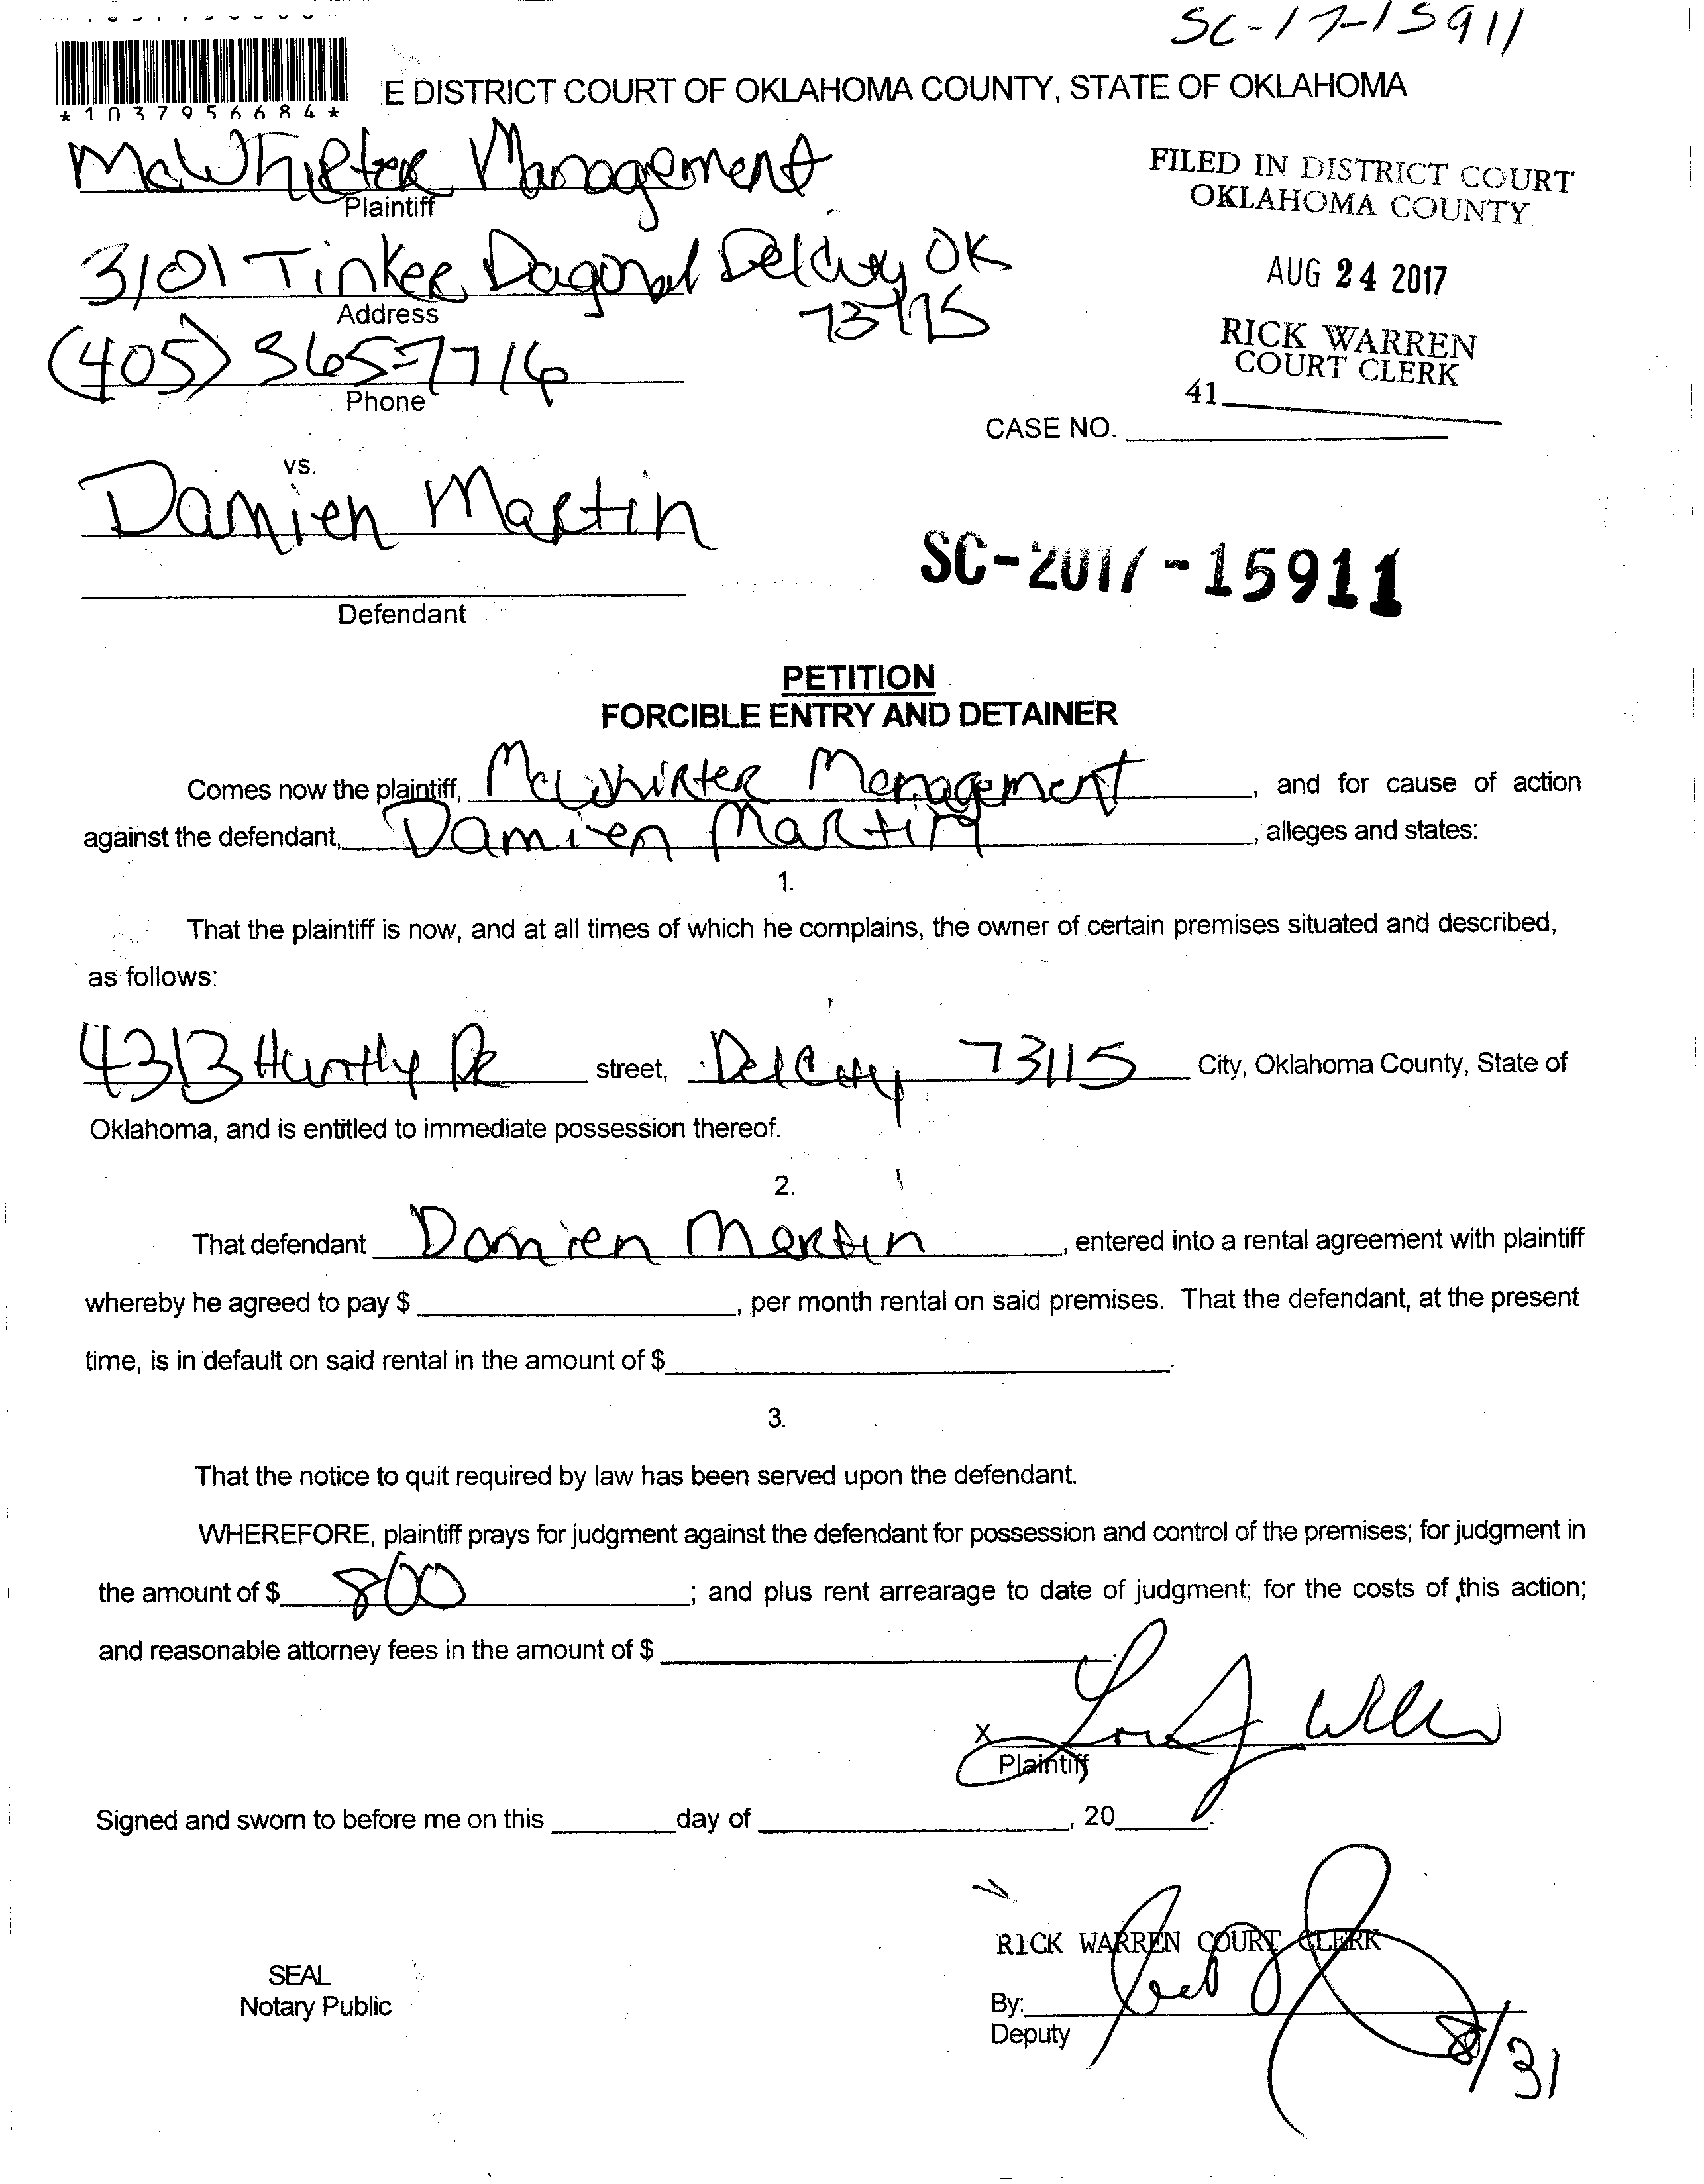 SC-17-15911
*1037956684*
E DISTRICT COURT OF OKLAHOMA COUNTY, STATE OF OKLAHOMA
McWhirter Management
Plaintiff
FILED IN DISTRICT COURT
OKLAHOMA COUNTY
3101 Tinker Dagonal Delcity OK
73115
Address
AUG 24 2017
(405) 365-7716
Phone
RICK WARREN
COURT CLERK
41
CASE NO.
vs.
Damien Martin
SC-2017-15911
Defendant
PETITION
FORCIBLE ENTRY AND DETAINER
Comes now the plaintiff, McWhirter Management, and for cause of action
against the defendant, Damien Martin, alleges and states:
1.
That the plaintiff is now, and at all times of which he complains, the owner of certain premises situated and described,
as follows:
4313 Huntly Dr street, Del City 73115 City, Oklahoma County, State of
Oklahoma, and is entitled to immediate possession thereof.
2.
That defendant Damien Martin, entered into a rental agreement with plaintiff
whereby he agreed to pay $ , per month rental on said premises. That the defendant, at the present
time, is in default on said rental in the amount of $ .
3.
That the notice to quit required by law has been served upon the defendant.
WHEREFORE, plaintiff prays for judgment against the defendant for possession and control of the premises; for judgment in
the amount of $ 800 ; and plus rent arrearage to date of judgment; for the costs of this action;
and reasonable attorney fees in the amount of $ .
X
Plaintiff
Signed and sworn to before me on this day of , 20 .
RICK WARREN COURT CLERK
SEAL
Notary Public
By:
Deputy
8/31